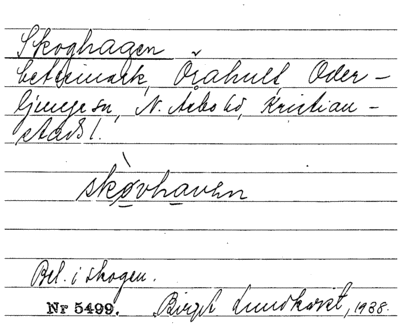 Skoghagen
betesmark, Örahult, Oder-
ljunga sn, N. Åsbo hd, Kristian-
stads l.
skòvhaven
Bel. i skogen.
Nr 5499. Birgit Lundkvist, 1938.